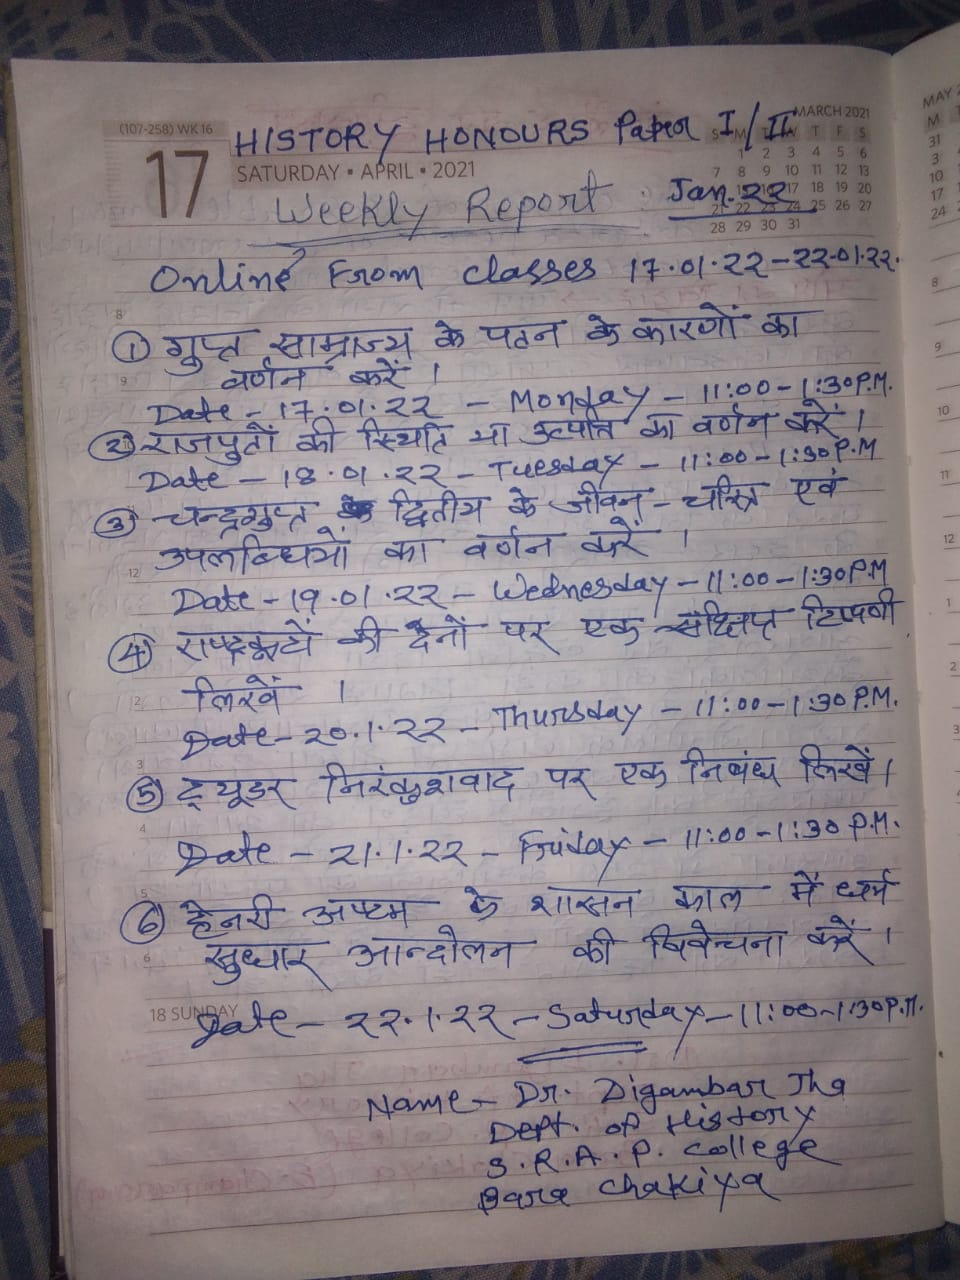 (107-258) WK 16
HISTORY HONOURS Paper I/II
MARCH 2021
17
SATURDAY • APRIL • 2021
S M T W T F S
1 2 3 4 5 6
7 8 9 10 11 12 13
17 18 19 20
21 22 23 24 25 26 27
28 29 30 31
Weekly Report Jan. 22
Online From Classes 17.01.22-22.01.22.
① गुप्त साम्राज्य के पतन के कारणों का
वर्णन करें ।
Date - 17.01.22 - Monday - 11:00-1:30P.M.
② राजपुतों की स्थिति या उत्पति का वर्णन करें ।
Date - 18.01.22 - Tuesday - 11:00-1:30P.M
③ चन्द्रगुप्त द्वितीय के जीवन-चरित्र एवं
उपलब्धियों का वर्णन करें ।
Date - 19.01.22 - Wednesday - 11:00-1:30P.M
④ राष्ट्रकूटों की देनों पर एक संक्षिप्त टिप्पणी
लिखें ।
Date - 20.1.22 - Thursday - 11:00-1:30P.M.
⑤ ट्यूडर निरंकुशवाद पर एक निबंध लिखें ।
Date - 21.1.22 - Friday - 11:00-1:30 P.M.
⑥ हेनरी अष्टम के शासन काल में धर्म
सुधार आन्दोलन की विवेचना करें ।
18 SUNDAY
Date - 22.1.22 - Saturday - 11:00-1:30P.M.
Name - Dr. Digambar Jha
Dept. of History
S.R.A.P. College
Bara Chakiya
MAY
M
31
3
10
17
24
8
9
10
11
12
1
2
3